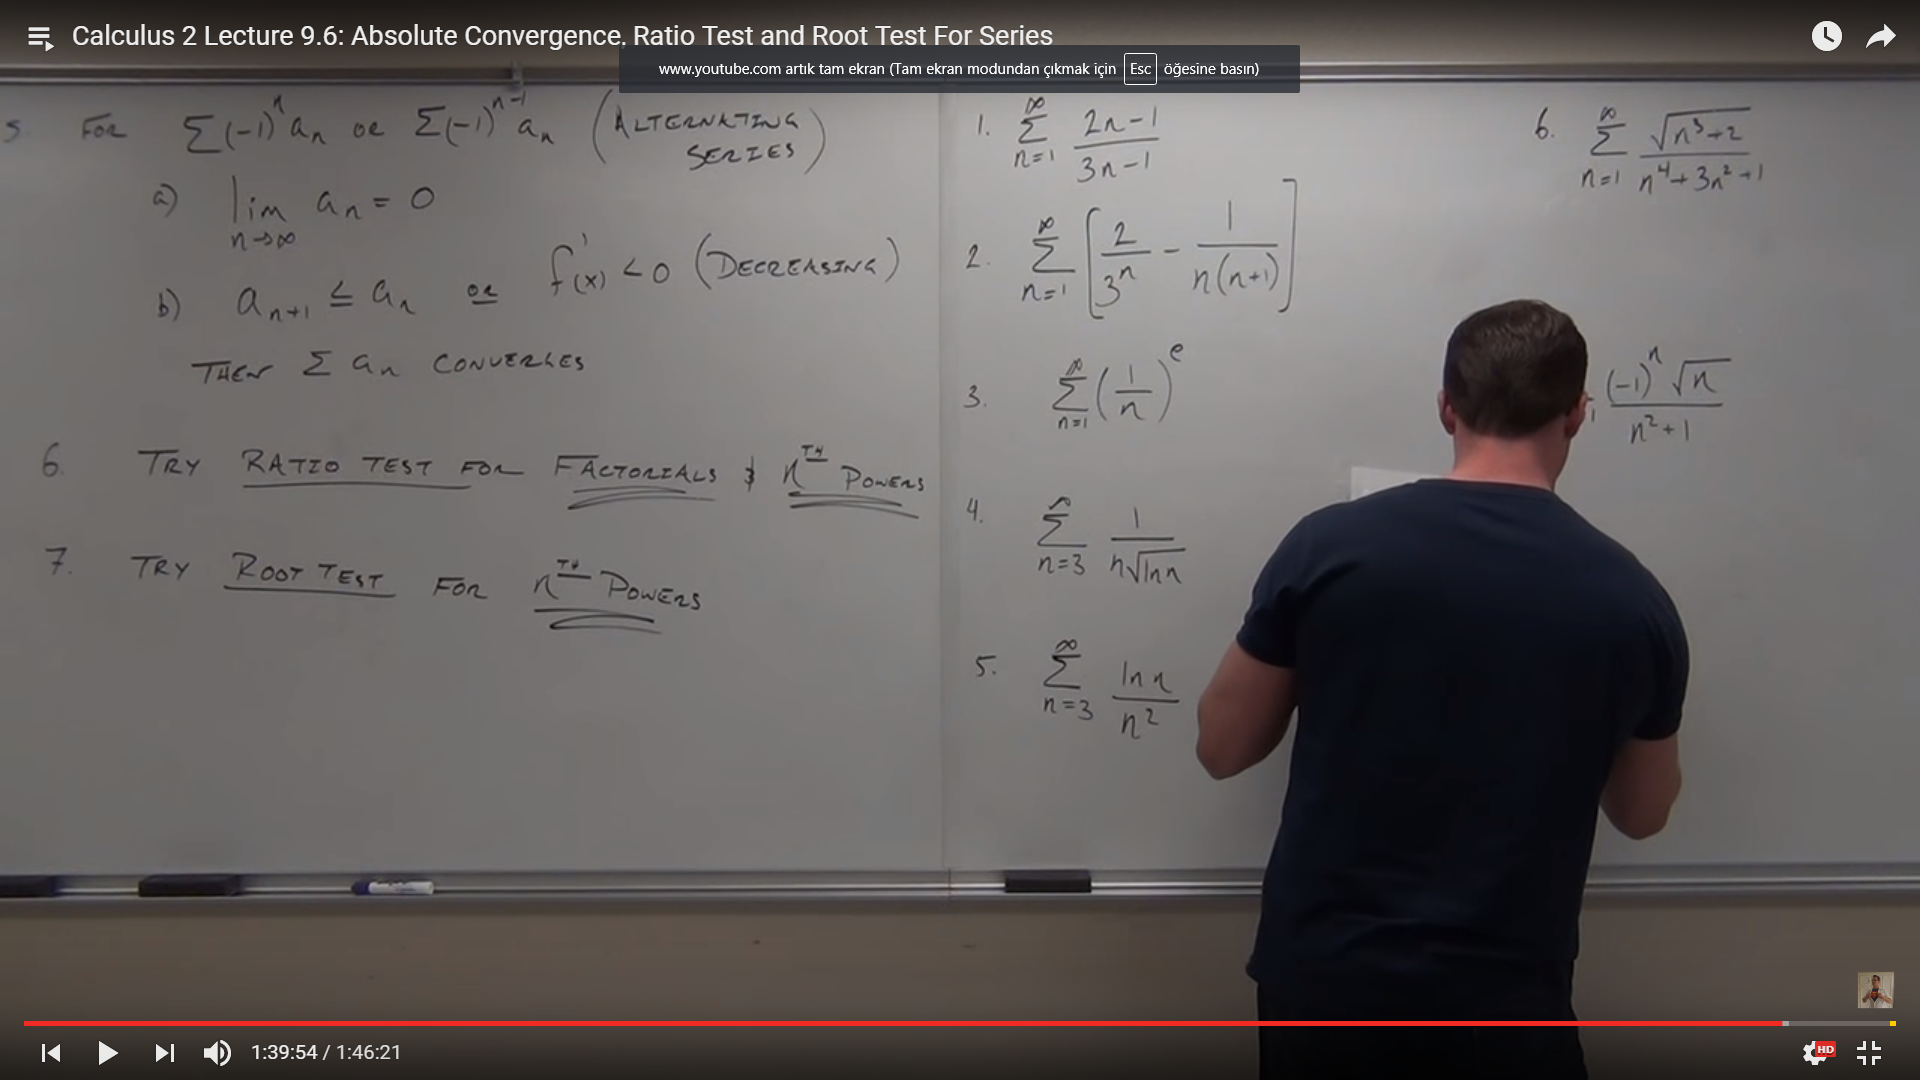 Calculus 2 Lecture 9.6: Absolute Convergence, Ratio Test and Root Test For Series
www.youtube.com artık tam ekran (Tam ekran modundan çıkmak için Esc öğesine basın)
5. FOR Σ(-1)^n a_n OR Σ(-1)^(n-1) a_n (ALTERNATING SERIES)
a) lim n→∞ a_n = 0
b) a_(n+1) ≤ a_n OR f'(x) < 0 (DECREASING)
THEN Σ a_n CONVERGES
6. TRY RATIO TEST FOR FACTORIALS & n^TH POWERS
7. TRY ROOT TEST FOR n^TH POWERS
1. ∞ Σ n=1 (2n-1)/(3n-1)
2. ∞ Σ n=1 [2/3^n - 1/(n(n+1))]
3. ∞ Σ n=1 (1/n)^e
4. ∞ Σ n=3 1/(n√(ln n))
5. ∞ Σ n=3 (ln n)/n^2
6. ∞ Σ n=1 √(n^3+2)/(n^4+3n^2+1)
1 (-1)^n √n/(n^2+1)
1:39:54 / 1:46:21
HD